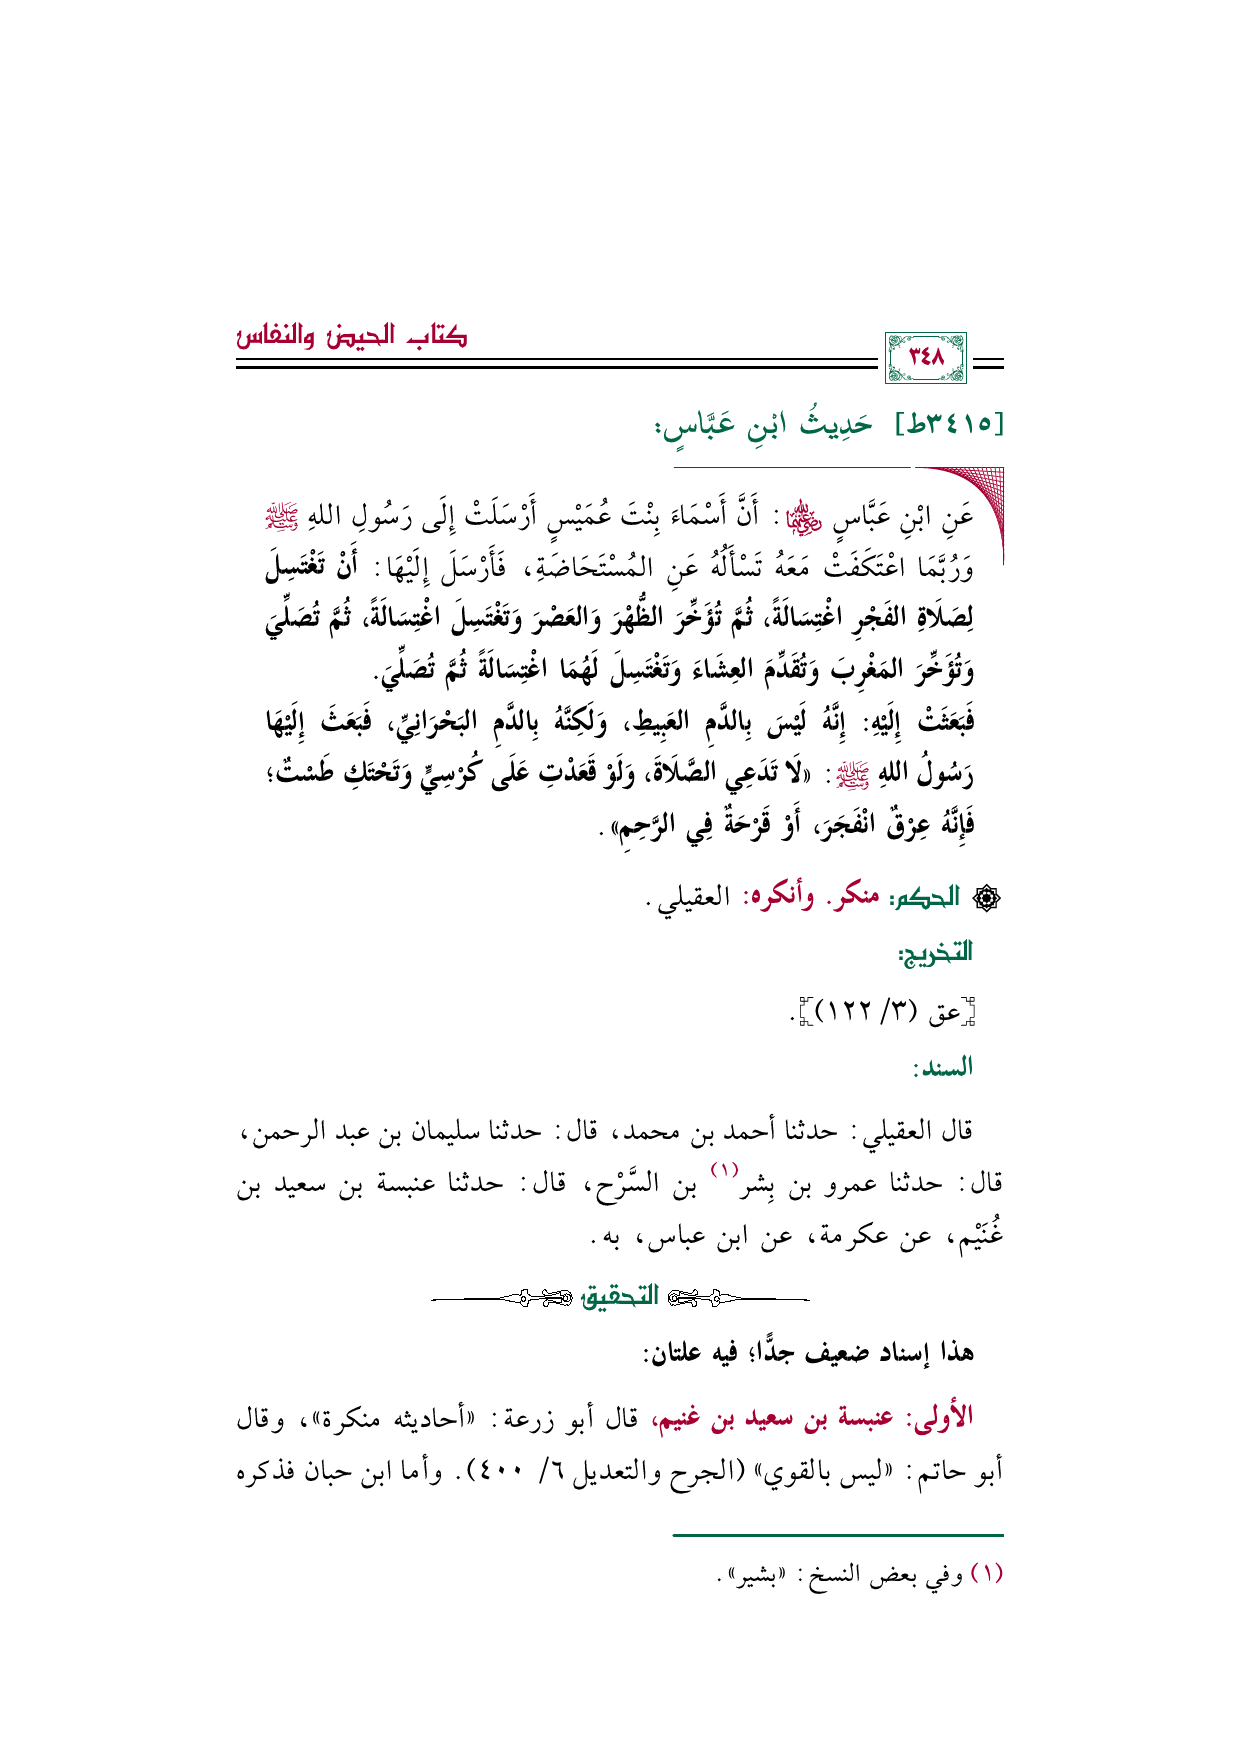 كتاب الحيض والنفاس
٣٤٨
[٣٤١٥ط] حَدِيثُ ابْنِ عَبَّاسٍ:
عَنِ ابْنِ عَبَّاسٍ رضي الله عنهما: أَنَّ أَسْمَاءَ بِنْتَ عُمَيْسٍ أَرْسَلَتْ إِلَى رَسُولِ اللهِ ﷺ
وَرُبَّمَا اعْتَكَفَتْ مَعَهُ تَسْأَلُهُ عَنِ المُسْتَحَاضَةِ، فَأَرْسَلَ إِلَيْهَا: أَنْ تَغْتَسِلَ
لِصَلَاةِ الفَجْرِ اغْتِسَالَةً، ثُمَّ تُؤَخِّرَ الظُّهْرَ وَالعَصْرَ وَتَغْتَسِلَ اغْتِسَالَةً، ثُمَّ تُصَلِّيَ
وَتُؤَخِّرَ المَغْرِبَ وَتُقَدِّمَ العِشَاءَ وَتَغْتَسِلَ لَهُمَا اغْتِسَالَةً ثُمَّ تُصَلِّيَ.
فَبَعَثَتْ إِلَيْهِ: إِنَّهُ لَيْسَ بِالدَّمِ العَبِيطِ، وَلَكِنَّهُ بِالدَّمِ البَحْرَانِيِّ، فَبَعَثَ إِلَيْهَا
رَسُولُ اللهِ ﷺ: «لَا تَدَعِي الصَّلَاةَ، وَلَوْ قَعَدْتِ عَلَى كُرْسِيٍّ وَتَحْتَكِ طَسْتٌ؛
فَإِنَّهُ عِرْقٌ انْفَجَرَ، أَوْ قَرْحَةٌ فِي الرَّحِمِ».
الحكم: منكر. وأنكره: العقيلي.
التخريج:
[عق (٣/ ١٢٢)].
السند:
قال العقيلي: حدثنا أحمد بن محمد، قال: حدثنا سليمان بن عبد الرحمن،
قال: حدثنا عمرو بن بِشر(١) بن السَّرْح، قال: حدثنا عنبسة بن سعيد بن
غُنَيْم، عن عكرمة، عن ابن عباس، به.
التحقيق
هذا إسناد ضعيف جدًّا؛ فيه علتان:
الأولى: عنبسة بن سعيد بن غنيم، قال أبو زرعة: «أحاديثه منكرة»، وقال
أبو حاتم: «ليس بالقوي» (الجرح والتعديل ٦/ ٤٠٠). وأما ابن حبان فذكره
(١) وفي بعض النسخ: «بشير».